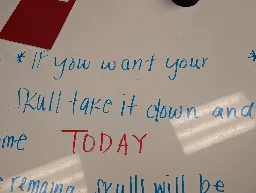 * If you want your *
skull take it down and
me TODAY
remaining skulls will be